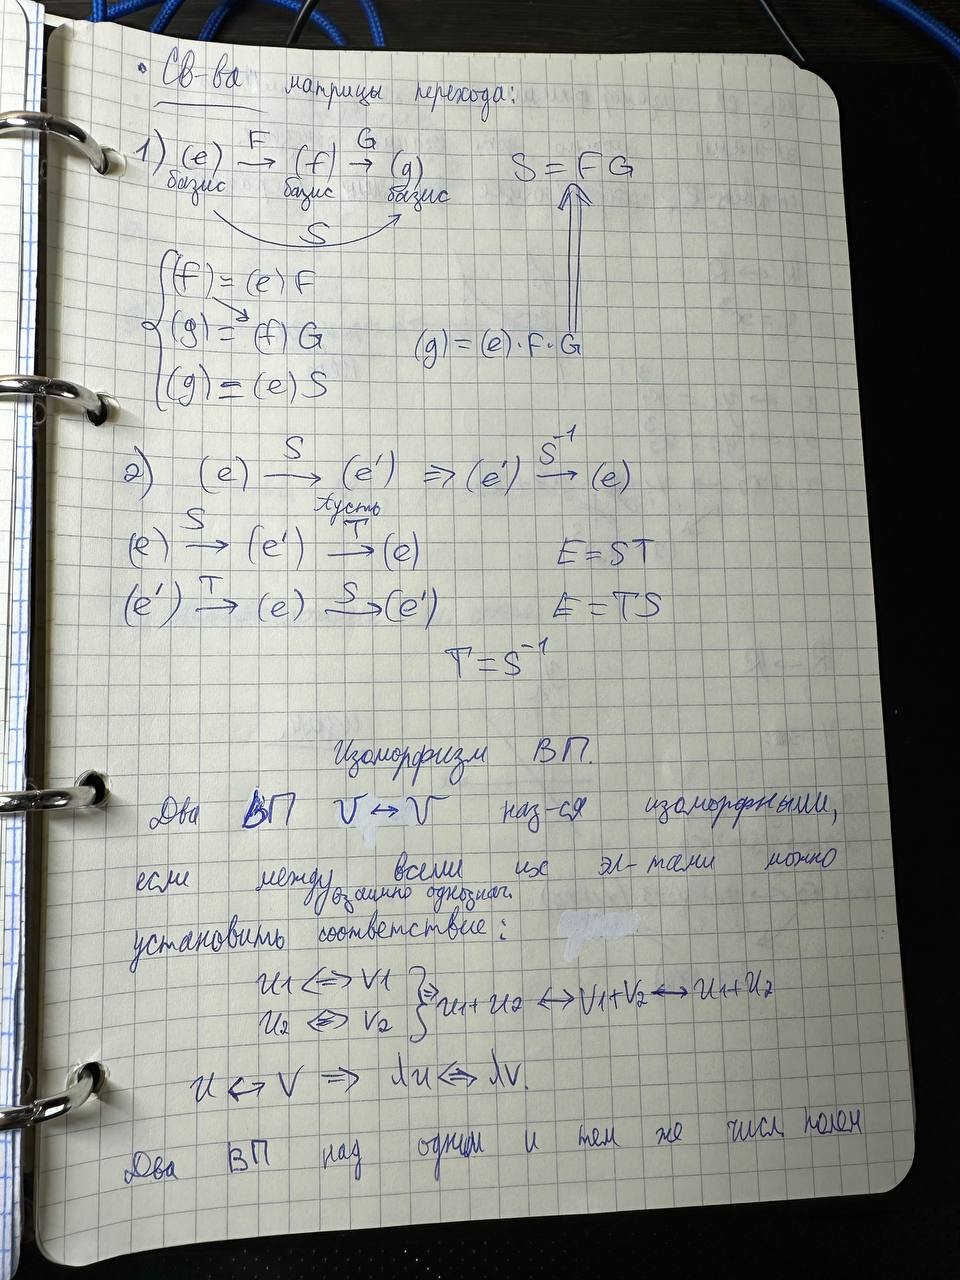 • Св-ва матрицы перехода:
1) (e) F→ (f) G→ (g) S = FG
базис базис базис
S
(f) = (e) F
(g) = (f) G (g) = (e)·F·G
(g) = (e) S
2) (e) S→ (e') ⇒ (e') S⁻¹→ (e)
пусть
(e) S→ (e') T→ (e) E = ST
(e') T→ (e) S→ (e') E = TS
T = S⁻¹
Изоморфизм ВП.
Два ВП V ↔ V наз-ся изоморфными,
если между всеми их эл-тами можно
взаимно однознач.
установить соответствие:
u1 ⇔ v1
u2 ⇔ v2 } ⇒ u1 + u2 ↔ v1+v2 ↔ u1+u2
u ↔ v ⇒ λu ⇔ λv.
Два ВП над одним и тем же числ. полем